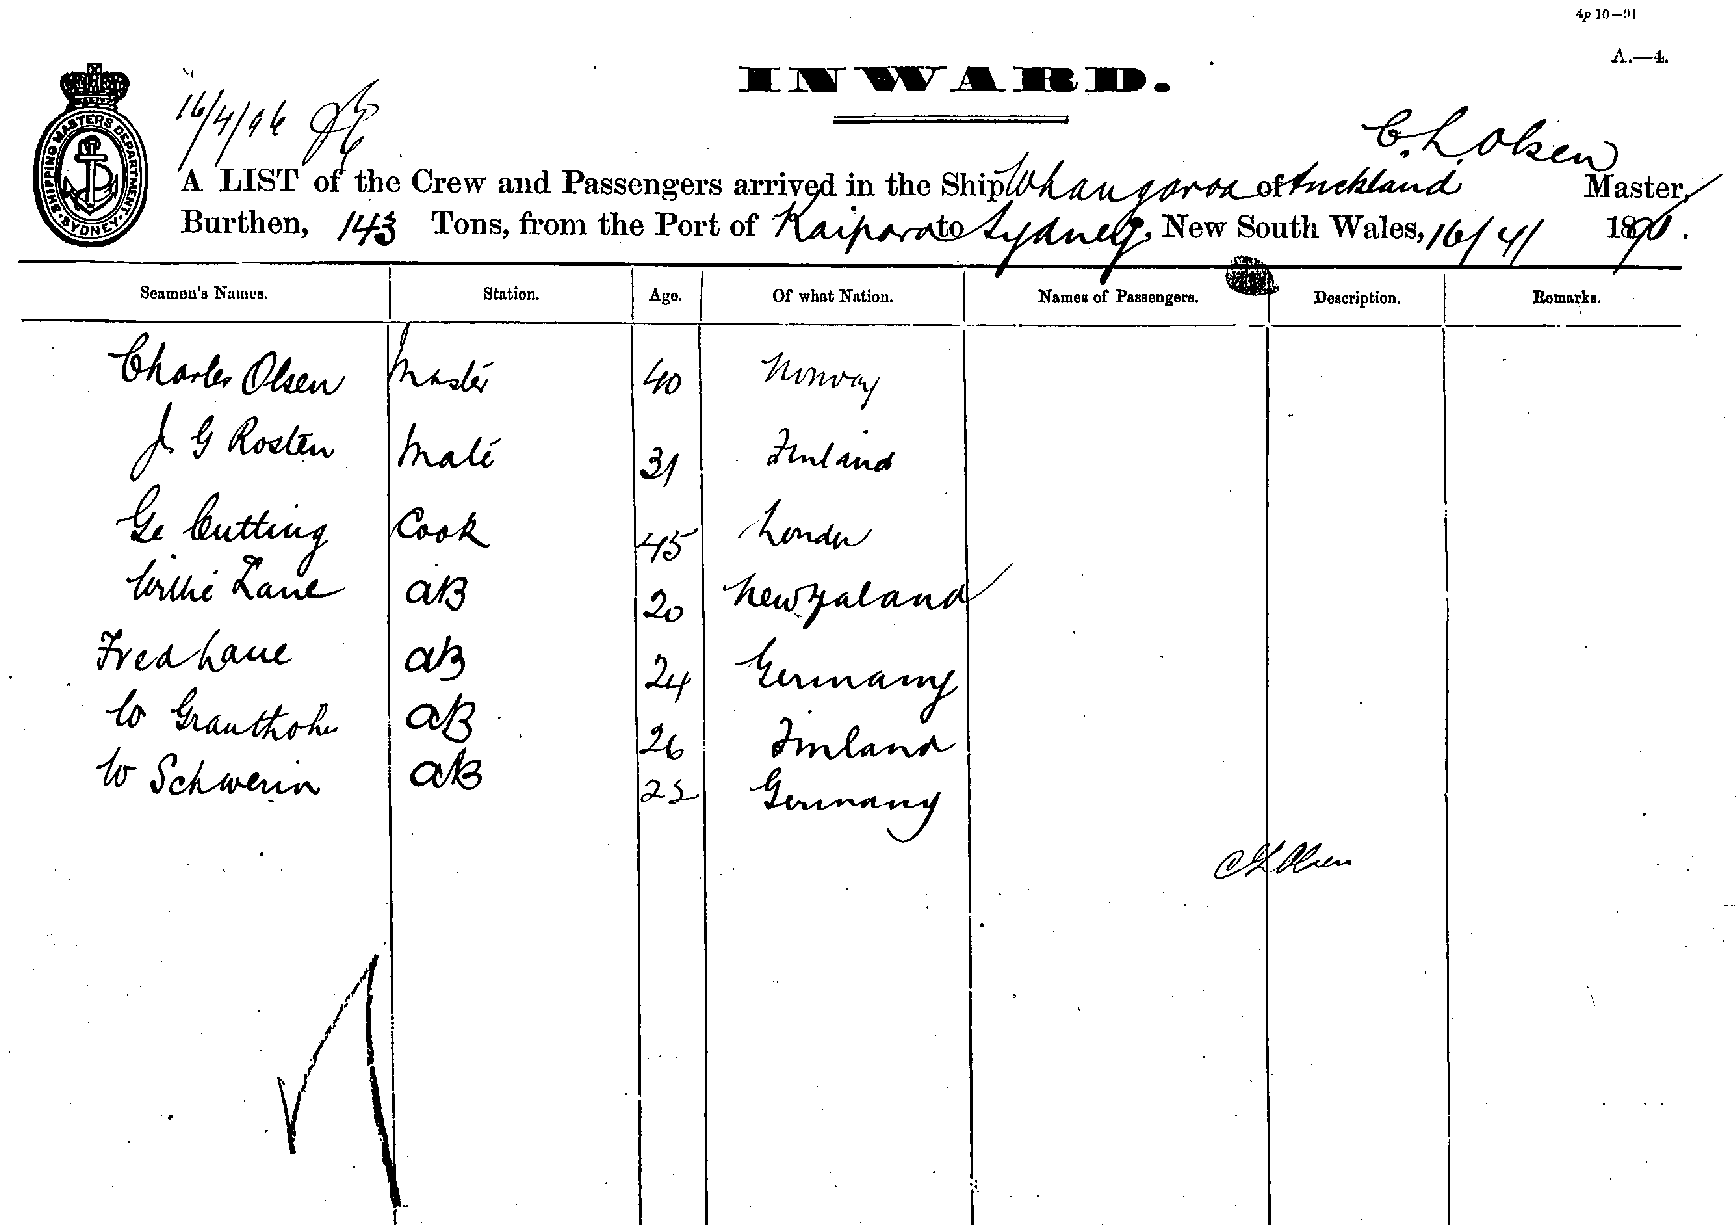 4p 10—91
A.—4.
INWARD.
SHIPPING MASTERS DEPARTMENT SYDNEY
16/4/96
C. L. Olsen
A LIST of the Crew and Passengers arrived in the Ship Whangaroa of Auckland Master,
Burthen, 143 Tons, from the Port of Kaipara to Sydney, New South Wales, 16/4/ 1896.
Seamen's Names. Station. Age. Of what Nation. Names of Passengers. Description. Remarks.
Charles Olsen Master 40 Norway
J. G Rosten Mate 31 Finland
Ge Cutting Cook 45 London
Willie Lane AB 20 Newzaland
Fred Lane AB 24 Germany
W AB 26 Finland
W Schwerin AB 25 Germany
C L Olsen